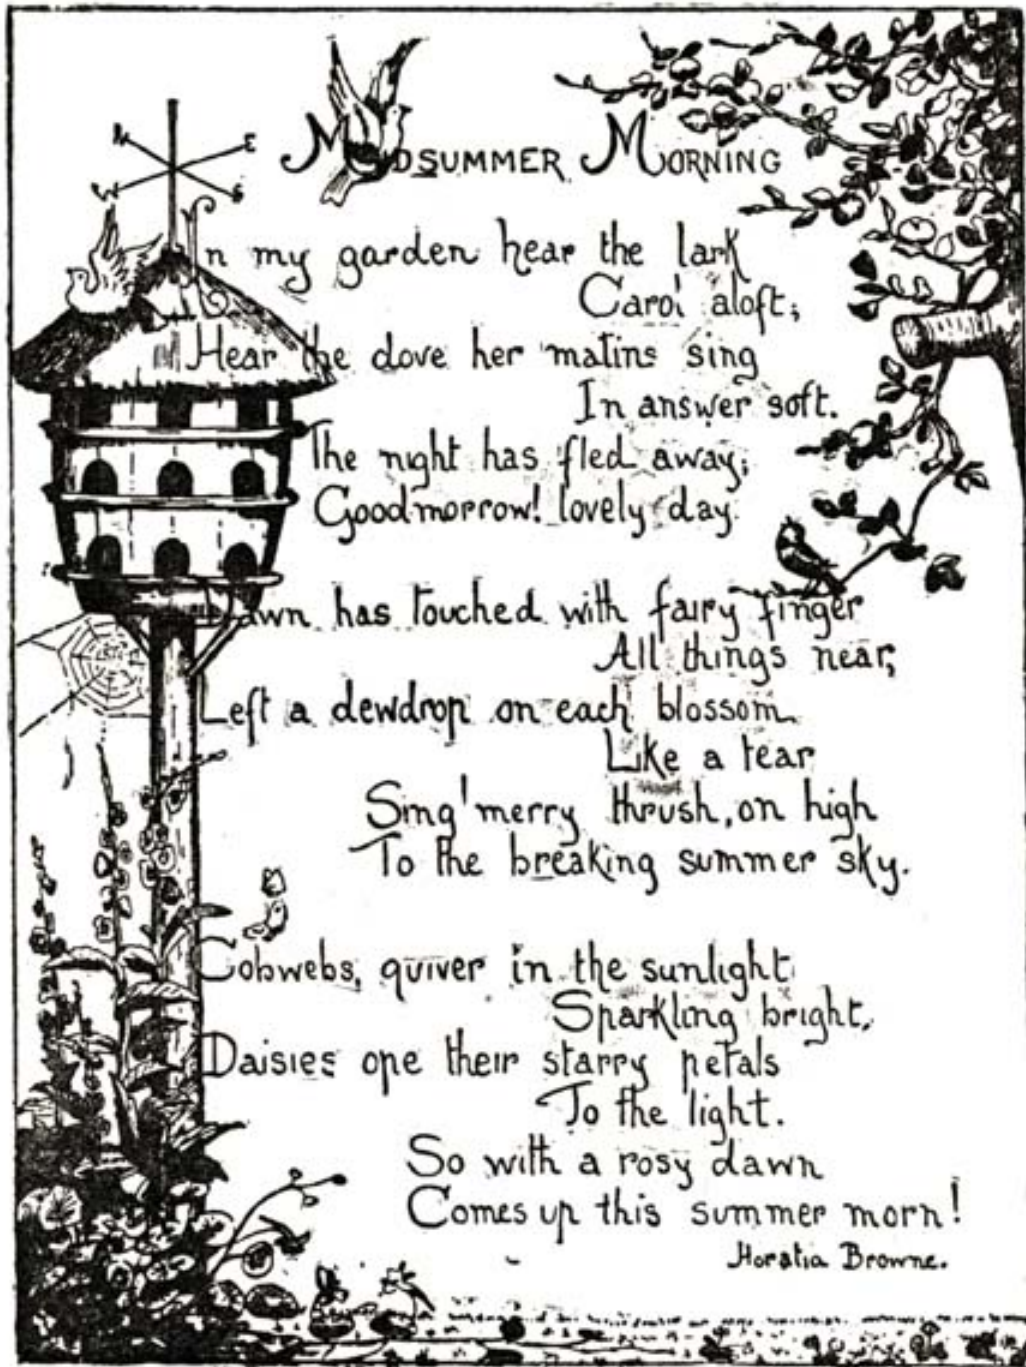 N
E
W
S
MIDSUMMER MORNING
In my garden hear the lark
Carol aloft;
Hear the dove her matins sing
In answer soft.
The night has fled away;
Goodmorrow! lovely day.
Dawn has touched with fairy finger
All things near,
Left a dewdrop on each blossom
Like a tear
Sing! merry thrush, on high
To the breaking summer sky.
Cobwebs, quiver in the sunlight
Sparkling bright,
Daisies ope their starry petals
To the light.
So with a rosy dawn
Comes up this summer morn!
Horatia Browne.